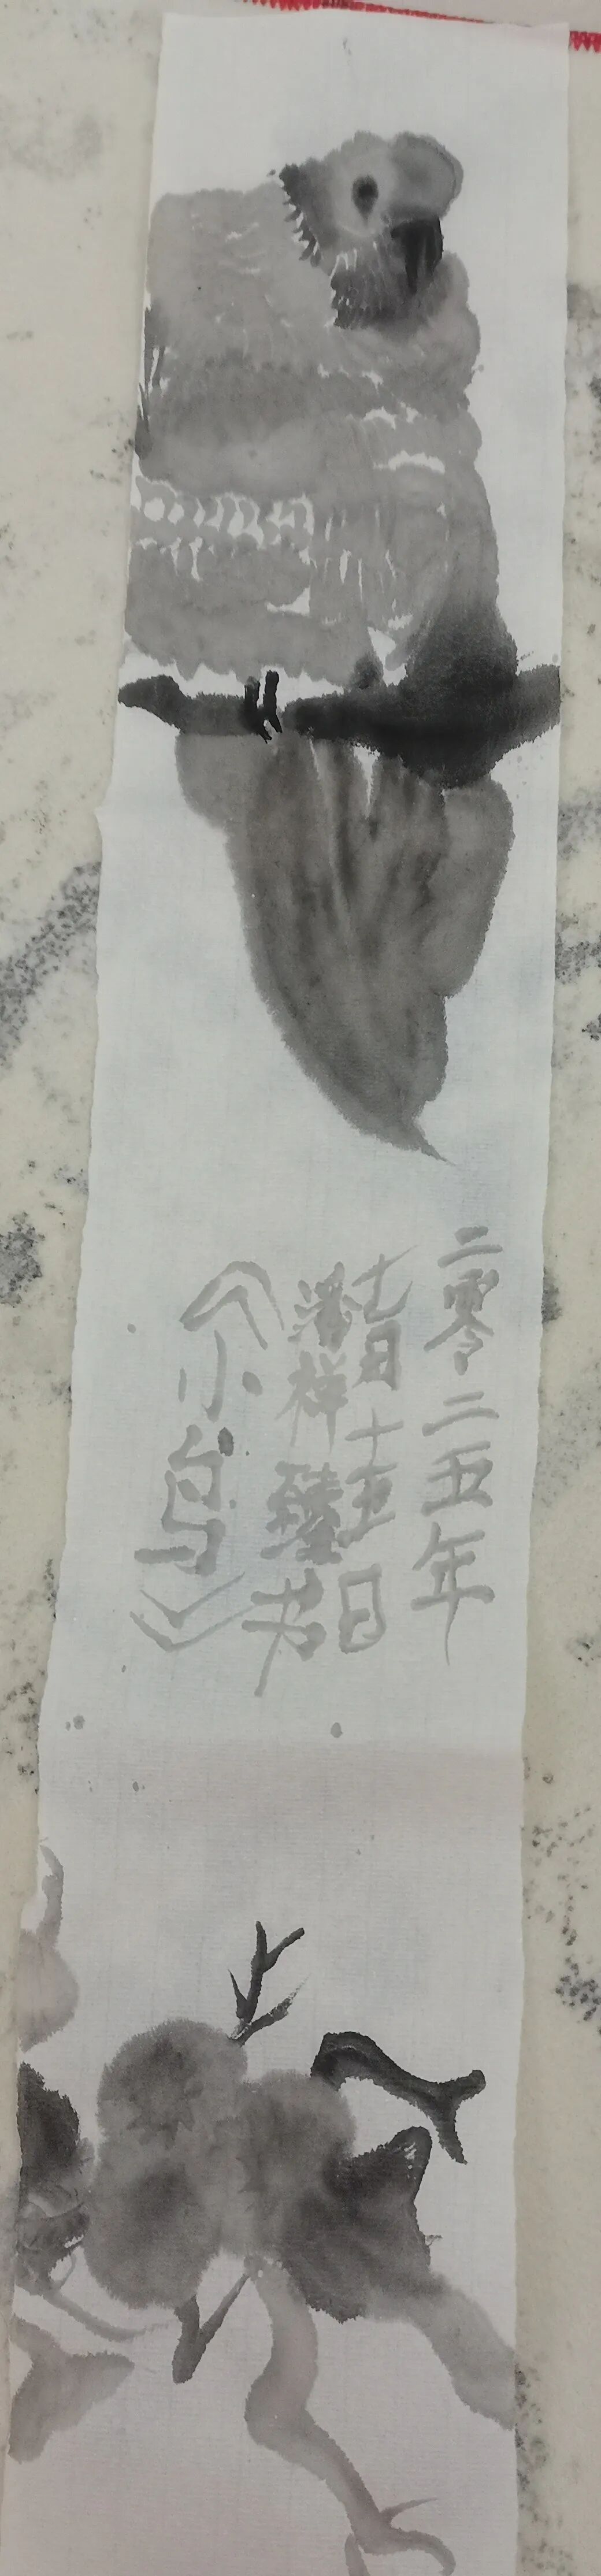 二零二五年
七月十五日
潘祥臻书
《小鸟》